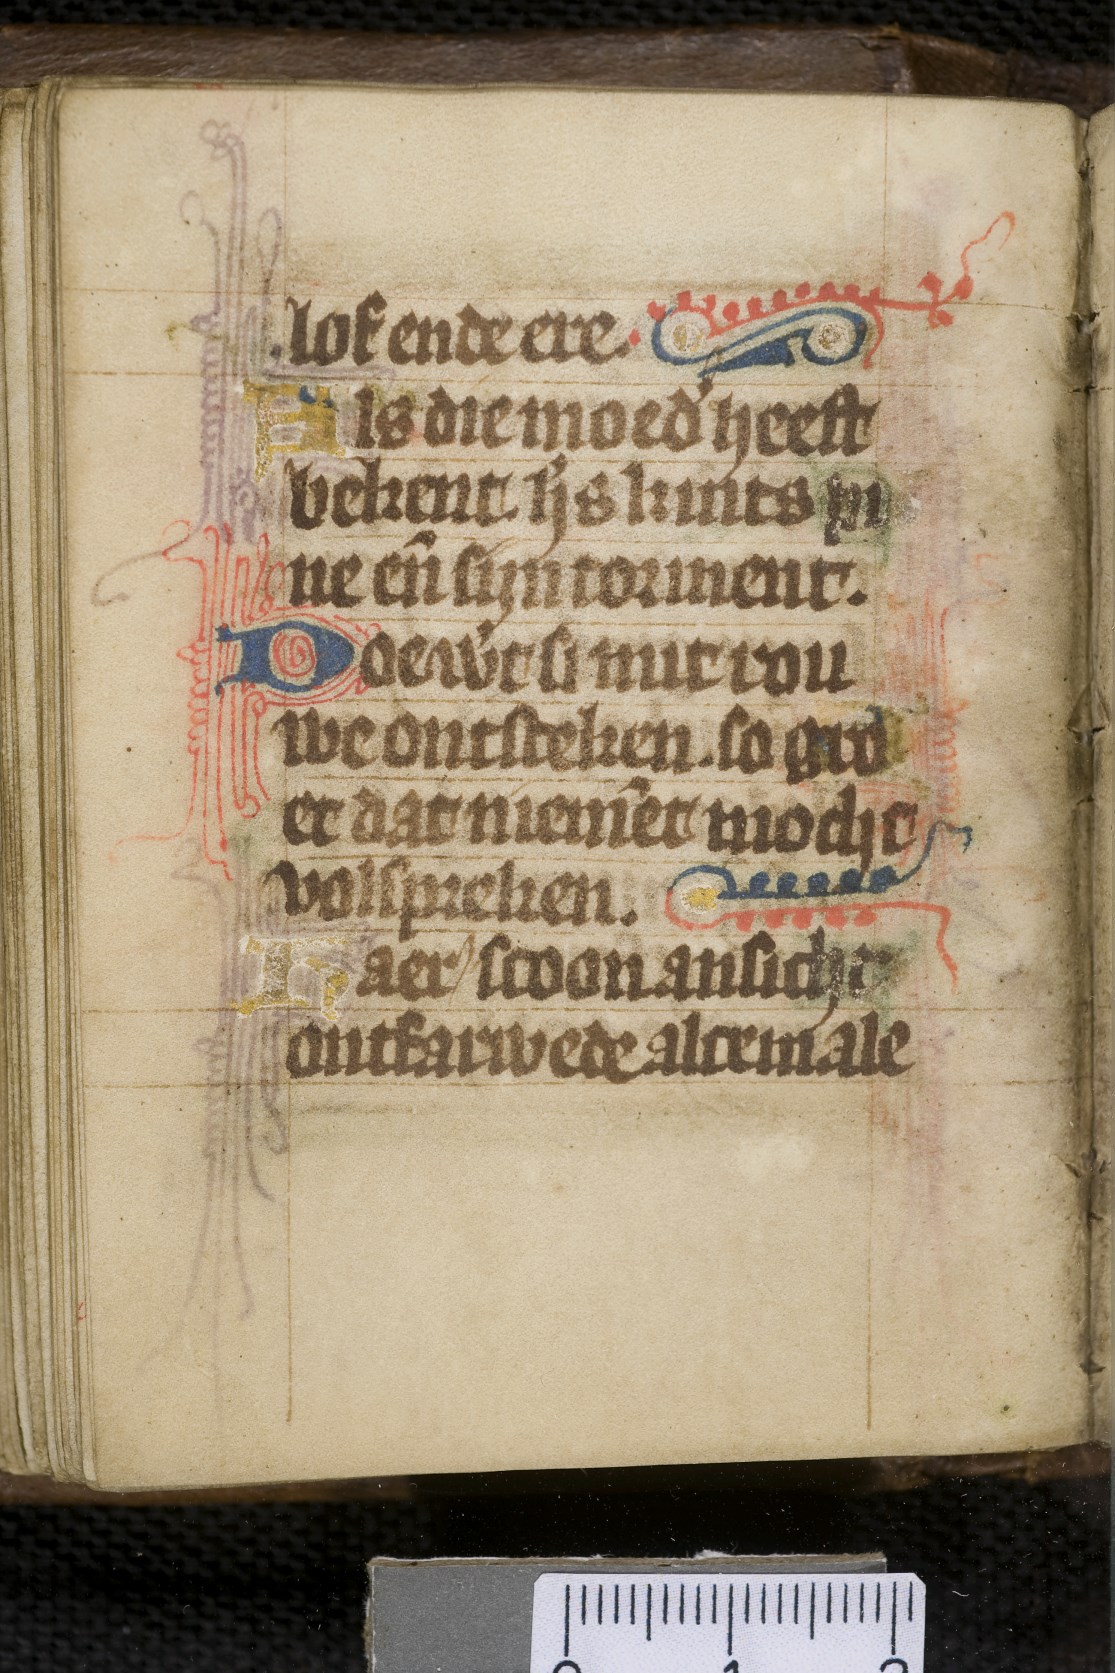 lof ende ere.
Als die moed' heeft
bekent h's kints pi
ne en̄ sijn torment.
Doe w't si mit rou
we ontsteken. so gro
et dat niem̄et mocht
volspreken.
Haer scoon ansicht
ontfarwede altemale
0 1 2